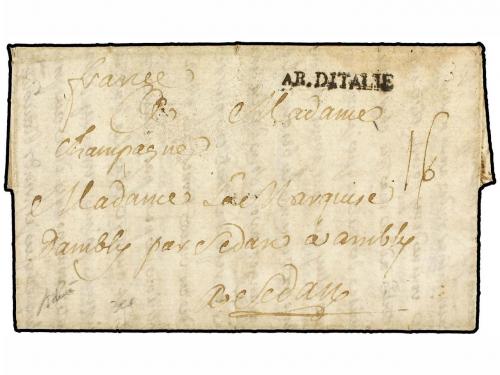 france
AR. DITALIE
A Madame
champagne
16
Madame La Marquise
Dambly par Sedan a ambly
De Sedan